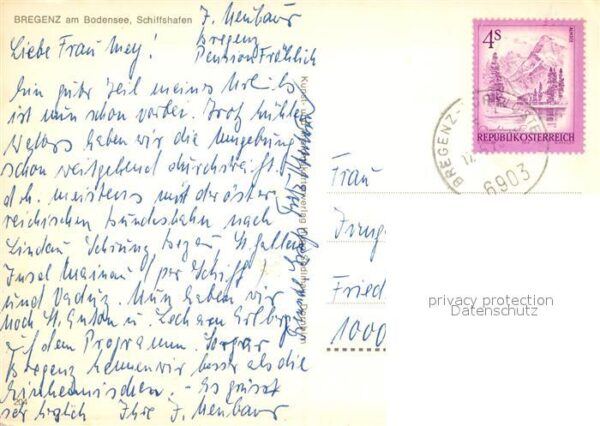 BREGENZ am Bodensee, Schiffshafen
J. Neubaur
Bregenz
Pension Fröhlich
Liebe Frau Mey!
Ein guter Teil meines Urlaubs
ist nun schon vorbei. Trotz kühlen
Wetters haben wir die Umgebung
schon weitgehend durchstreift.
d.h. meistens mit der öster-
reichischen Bundesbahn nach
Lindau Schruns Bezau St. Gallen
Insel Mainau (per Schiff)
und Vaduz. Nun haben wir
noch St. Anton u. Lech am Arlberg
auf dem Programm. Sogar
Bregenz kennen wir besser als die
Einheimischen. - Es grüsst
sehr herzlich Ihre J. Neubaur
204
4S
REPUBLIK ÖSTERREICH
BREGENZ
6903
Frau
Fried
1000
privacy protection
Datenschutz